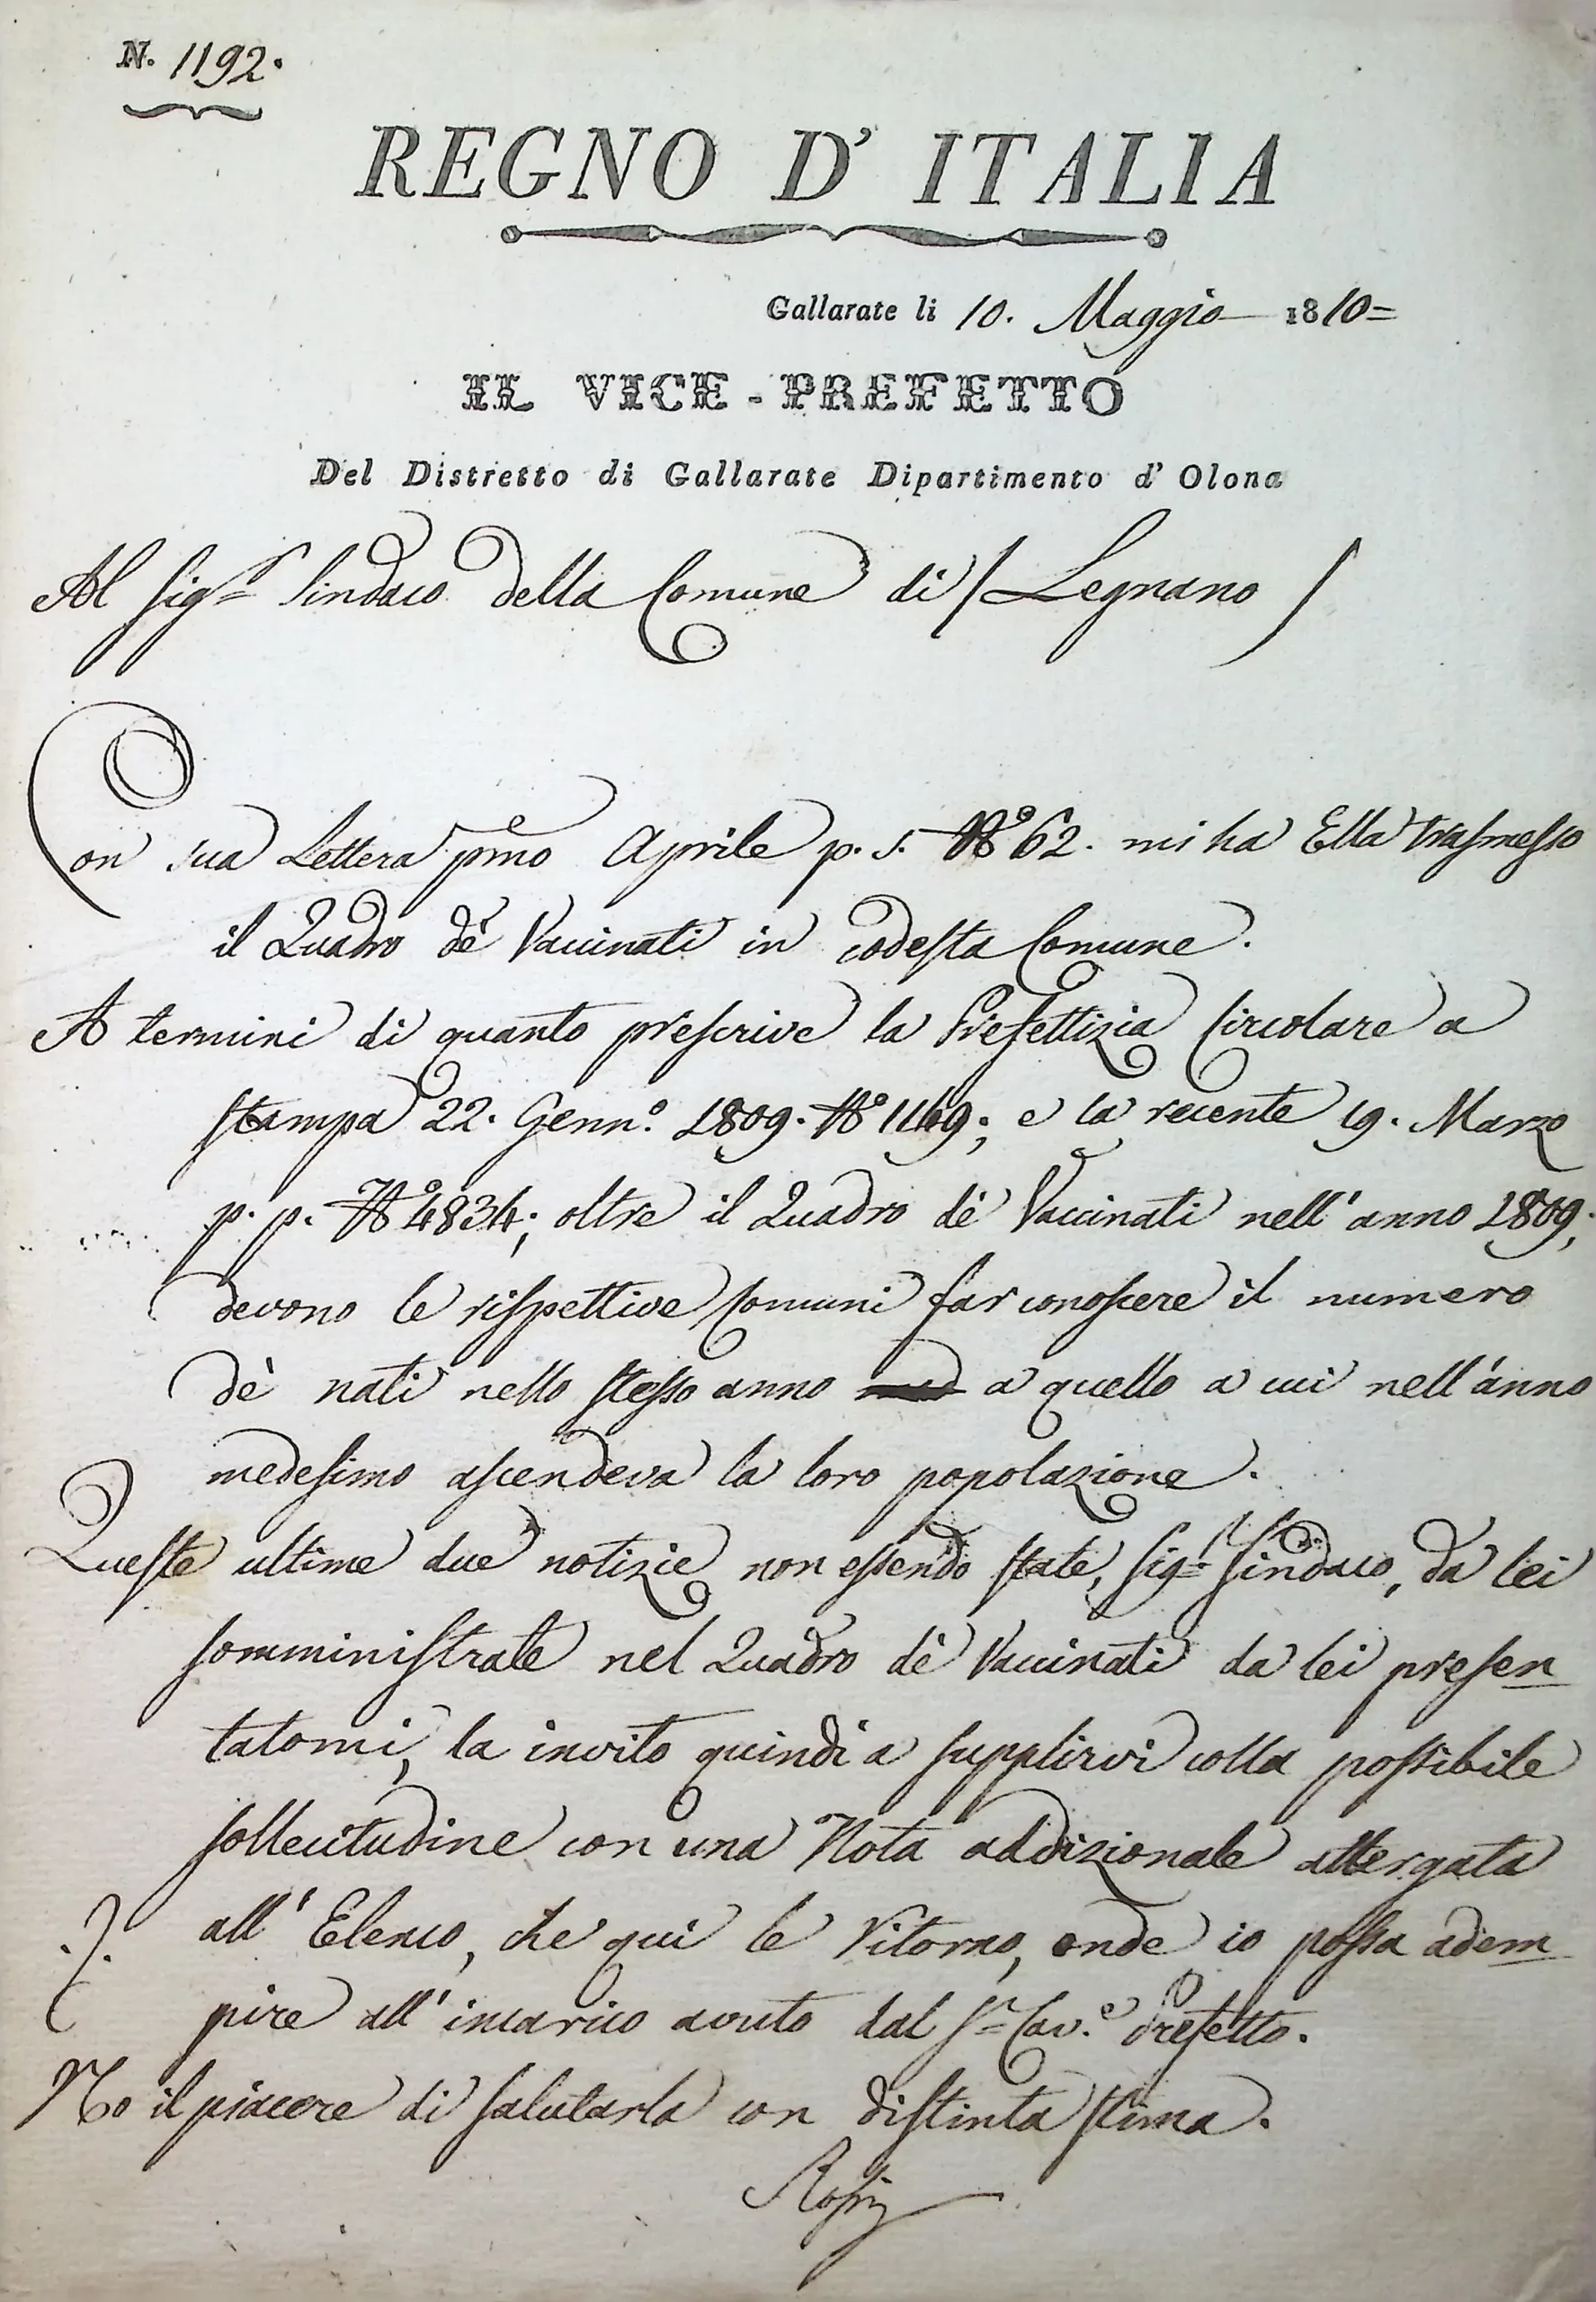 N. 1192.
REGNO D' ITALIA
Gallarate li 10. Maggio 1810=
IL VICE-PREFETTO
Del Distretto di Gallarate Dipartimento d' Olona
Al Sigr Sindaco della Comune di / Legnano /
Con sua Lettera pmo Aprile p. s. No 62. mi ha Ella trasmesso
il Quadro de' Vaccinati in codesta Comune.
A termini di quanto prescrive la Prefettizia Circolare a
stampa 22. Genno. 1809. No 1149; e la recente 19. Marzo
p. p. No 4834; oltre il Quadro de' Vaccinati nell' anno 1809;
devono le rispettive Comuni far conoscere il numero
de' nati nello stesso anno a quello a cui nell' anno
medesimo ascendeva la loro popolazione.
Queste ultime due notizie non essendo state, Sigr Sindaco, da lei
somministrate nel Quadro de' Vaccinati da lei presen
tatomi, la invito quindi a supplirvi colla possibile
sollecitudine con una Nota addizionale attergata
./. all' Elenco, che qui le ritorno, onde io possa adem
pire all' incarico avuto dal Sr Cav.e Prefetto.
Ho il piacere di salutarla con distinta stima.